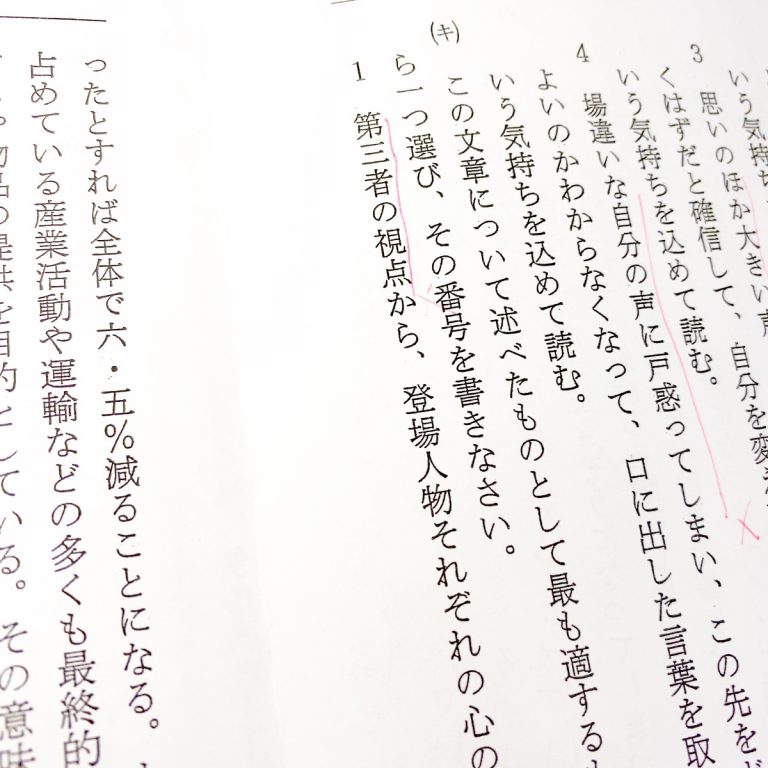 いう気持ち
3 思いのほか大きい声
くはずだと確信して、自分を変え
いう気持ちを込めて読む。
4 場違いな自分の声に戸惑ってしまい、この先をど
よいのかわからなくなって、口に出した言葉を取
いう気持ちを込めて読む。
(キ) この文章について述べたものとして最も適する
ら一つ選び、その番号を書きなさい。
1 第三者の視点から、登場人物それぞれの心の
ったとすれば全体で六・五％減ることになる。
占めている産業活動や運輸などの多くも最終的
や物品の提供を目的としている。その意味